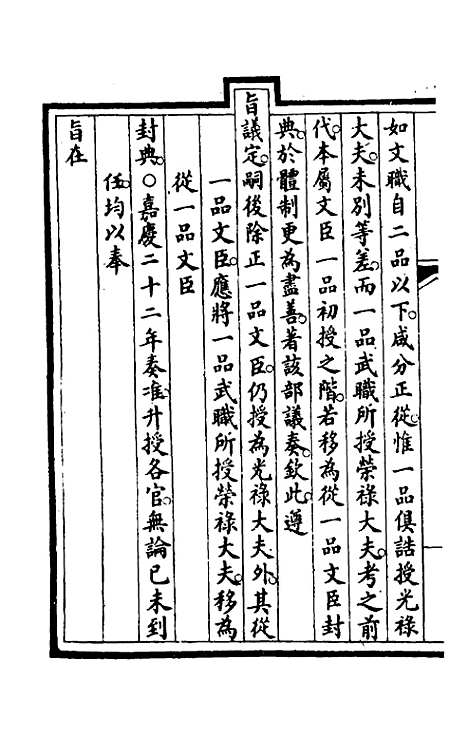 如文職自二品以下。咸分正從。惟一品俱誥授光祿
大夫。未別等差。而一品武職所授榮祿大夫。考之前
代。本屬文臣一品初授之階。若移為從一品文臣封
典。於體制更為盡善。著該部議奏。欽此。遵
旨議定。嗣後除正一品文臣。仍授為光祿大夫外。其從
一品文臣。應將一品武職所授榮祿大夫。移為
從一品文臣
封典。○嘉慶二十二年奏准。升授各官。無論已未到
任。均以奉
旨在